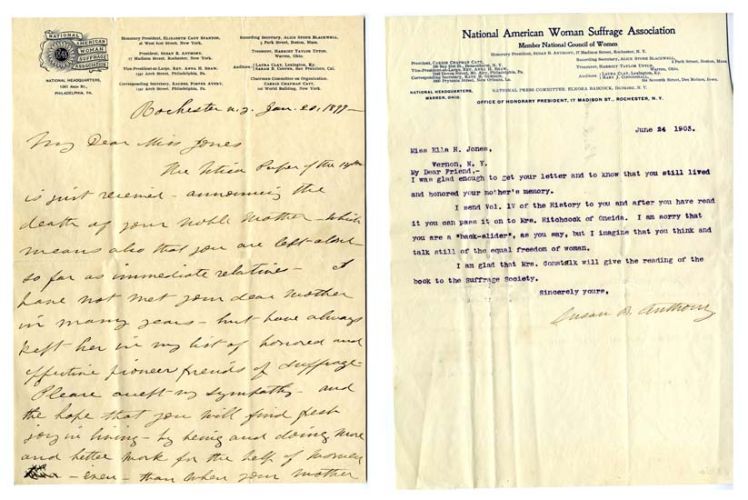 NATIONAL AMERICAN WOMAN SUFFRAGE ASSOCIATION
NATIONAL HEADQUARTERS
PHILADELPHIA, PA.
Honorary President, ELIZABETH CADY STANTON,
New York.
President, SUSAN B. ANTHONY,
17 Madison Street, Rochester, N. Y.
Vice-President-at-Large, REV. ANNA H. SHAW,
Philadelphia, Pa.
Corresponding Secretary, RACHEL FOSTER AVERY,
Philadelphia, Pa.
Recording Secretary, ALICE STONE BLACKWELL,
3 Park Street, Boston, Mass.
Treasurer, HARRIET TAYLOR UPTON,
Warren, Ohio.
Auditors { LAURA CLAY, Lexington, Ky.
Chairman Committee on Organization,
CARRIE CHAPMAN CATT,
World Building, New York.
Rochester N. Y. Jan. 20, 1899 -
My Dear Miss Jones
The Utica Paper of the
is just received - announcing the
death of your noble mother - which
means also that you are left alone
so far as immediate relatives - I
have not met your dear mother
in many years - but have always
kept her in my list of honored and
effective pioneer friends of suffrage
Please accept my sympathy - and
the hope that you will find fresh
joy in living - by being and doing more
and better work for the help of women
- even - than when your mother
National American Woman Suffrage Association
Member National Council of Women
Honorary President, SUSAN B. ANTHONY, 17 Madison Street, Rochester, N. Y.
President, CARRIE CHAPMAN CATT,
Vice-President-at-Large, REV. ANNA H. SHAW,
Corresponding Secretary, KATE M. GORDON,
Recording Secretary, ALICE STONE BLACKWELL, 3 Park Street, Boston, Mass.
Treasurer, HARRIET TAYLOR UPTON,
Warren, Ohio.
Auditors { LAURA CLAY, Lexington, Ky.
Des Moines, Iowa.
NATIONAL HEADQUARTERS,
WARREN, OHIO.
NATIONAL PRESS COMMITTEE, ELNORA BABCOCK, DUNKIRK, N. Y.
OFFICE OF HONORARY PRESIDENT, 17 MADISON ST., ROCHESTER, N. Y.
June 24 1903.
Miss Ella H. Jones,
Vernon, N. Y.
My Dear Friend,-
I was glad enough to get your letter and to know that you still lived
and honored your mother's memory.
I send Vol. IV of the History to you and after you have read
it you can pass it on to Mrs. Hitchcock of Oneida. I am sorry that
you are a "back-slider", as you say, but I imagine that you think and
talk still of the equal freedom of woman.
I am glad that Mrs. will give the reading of the
book to the Suffrage Society.
Sincerely yours,
Susan B. Anthony